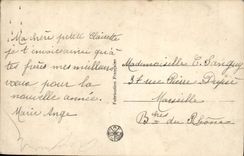 Ma chère petite Clairette
je t'envoie ainsi qu'à
tes frères mes meilleurs
vœux pour la
nouvelle année.
Marie Ange
Fabrication Française
Mademoiselle C. Savigny
31 rue Pierre
Marseille
B^ches du Rhône